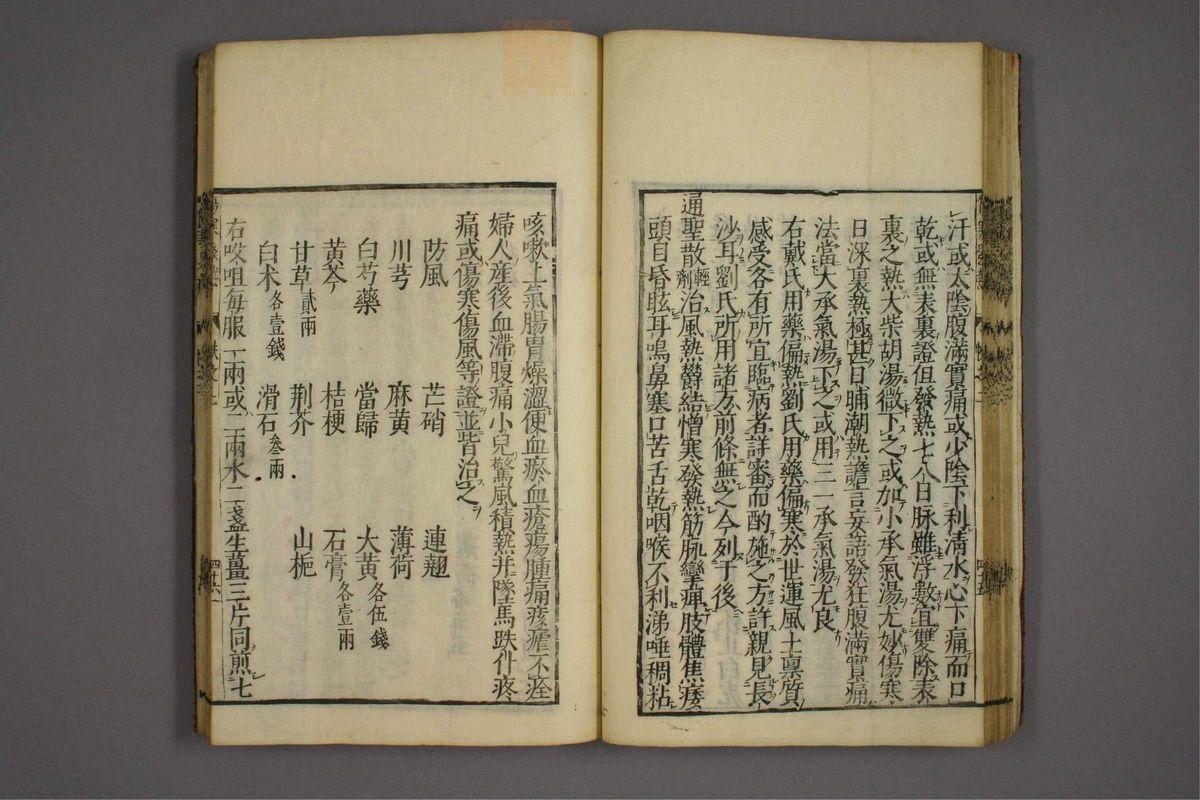 汗或太陰腹滿實痛或少陰下利清水心下痛而口
乾或無表裏證但發熱七八日脉雖浮數宜雙除表
裏之熱大柴胡湯微下之或加小承氣湯尤妙傷寒
日深裏熱極甚日晡潮熱譫言妄語發狂腹滿實痛
法當大承氣湯下之或用三一承氣湯尤良
右戴氏用藥偏熱劉氏用藥偏寒於世運風土禀質
感受各有所宜臨病者詳審而酌施之方許親見長
沙耳劉氏所用諸方前條無之今列于後
通聖散輕劑治風熱鬱結憎寒發熱筋脉攣痺肢體焦痿
頭目昏眩耳鳴鼻塞口苦舌乾咽喉不利涕唾稠粘
咳嗽上氣腸胃燥澀便血瘀血瘡瘍腫痛痎瘧不痊
婦人産後血滯腹痛小兒驚風積熱并墜馬跌仆疼
痛或傷寒傷風等證並皆治之
防風 芒硝 連翹
川芎 麻黄 薄荷
白芍藥 當歸 大黄各伍錢
黄芩 桔梗 石膏各壹兩
甘草貳兩 荆芥 山梔
白术各壹錢 滑石叁兩
右㕮咀毎服一兩或二兩水二盞生薑三片同煎七